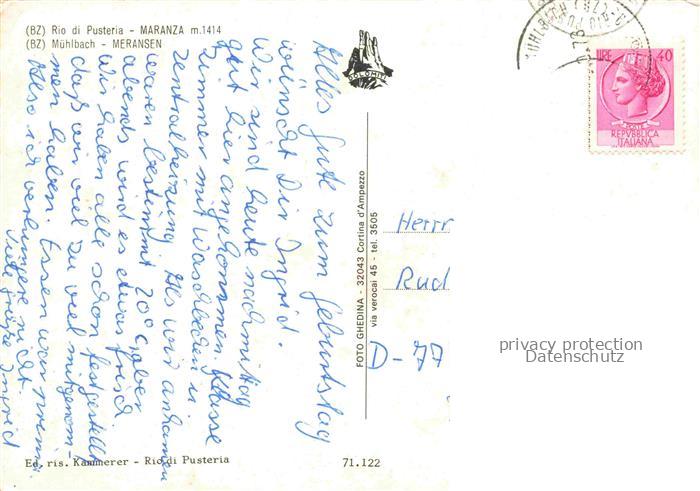 (BZ) Rio di Pusteria - MARANZA m.1414
(BZ) Mühlbach - MERANSEN
Alles Gute zum Geburtstag
wünscht Dir Ingrid.
Wir sind heute nachmittag
gut hier angekommen. Klasse
Zimmer mit Waschbecken u.
Zentralheizung. Als wir ankamen
waren bestimmt 20°C, aber
abends wird es etwas frisch
Wir haben alle schon festgestellt
daß wir viel zu viel mitgenom-
men haben. Essen war prima
Also ich verhungere nicht.
Viele Grüße Ingrid
DOLOMITI
FOTO GHEDINA - 32043 Cortina d'Ampezzo
via verocai 45 - tel. 3505
LIRE 40
POSTE
REPVBBLICA
ITALIANA
Herrn
Rud
D-77
privacy protection
Datenschutz
Ed. ris. Kammerer - Rio di Pusteria
71.122